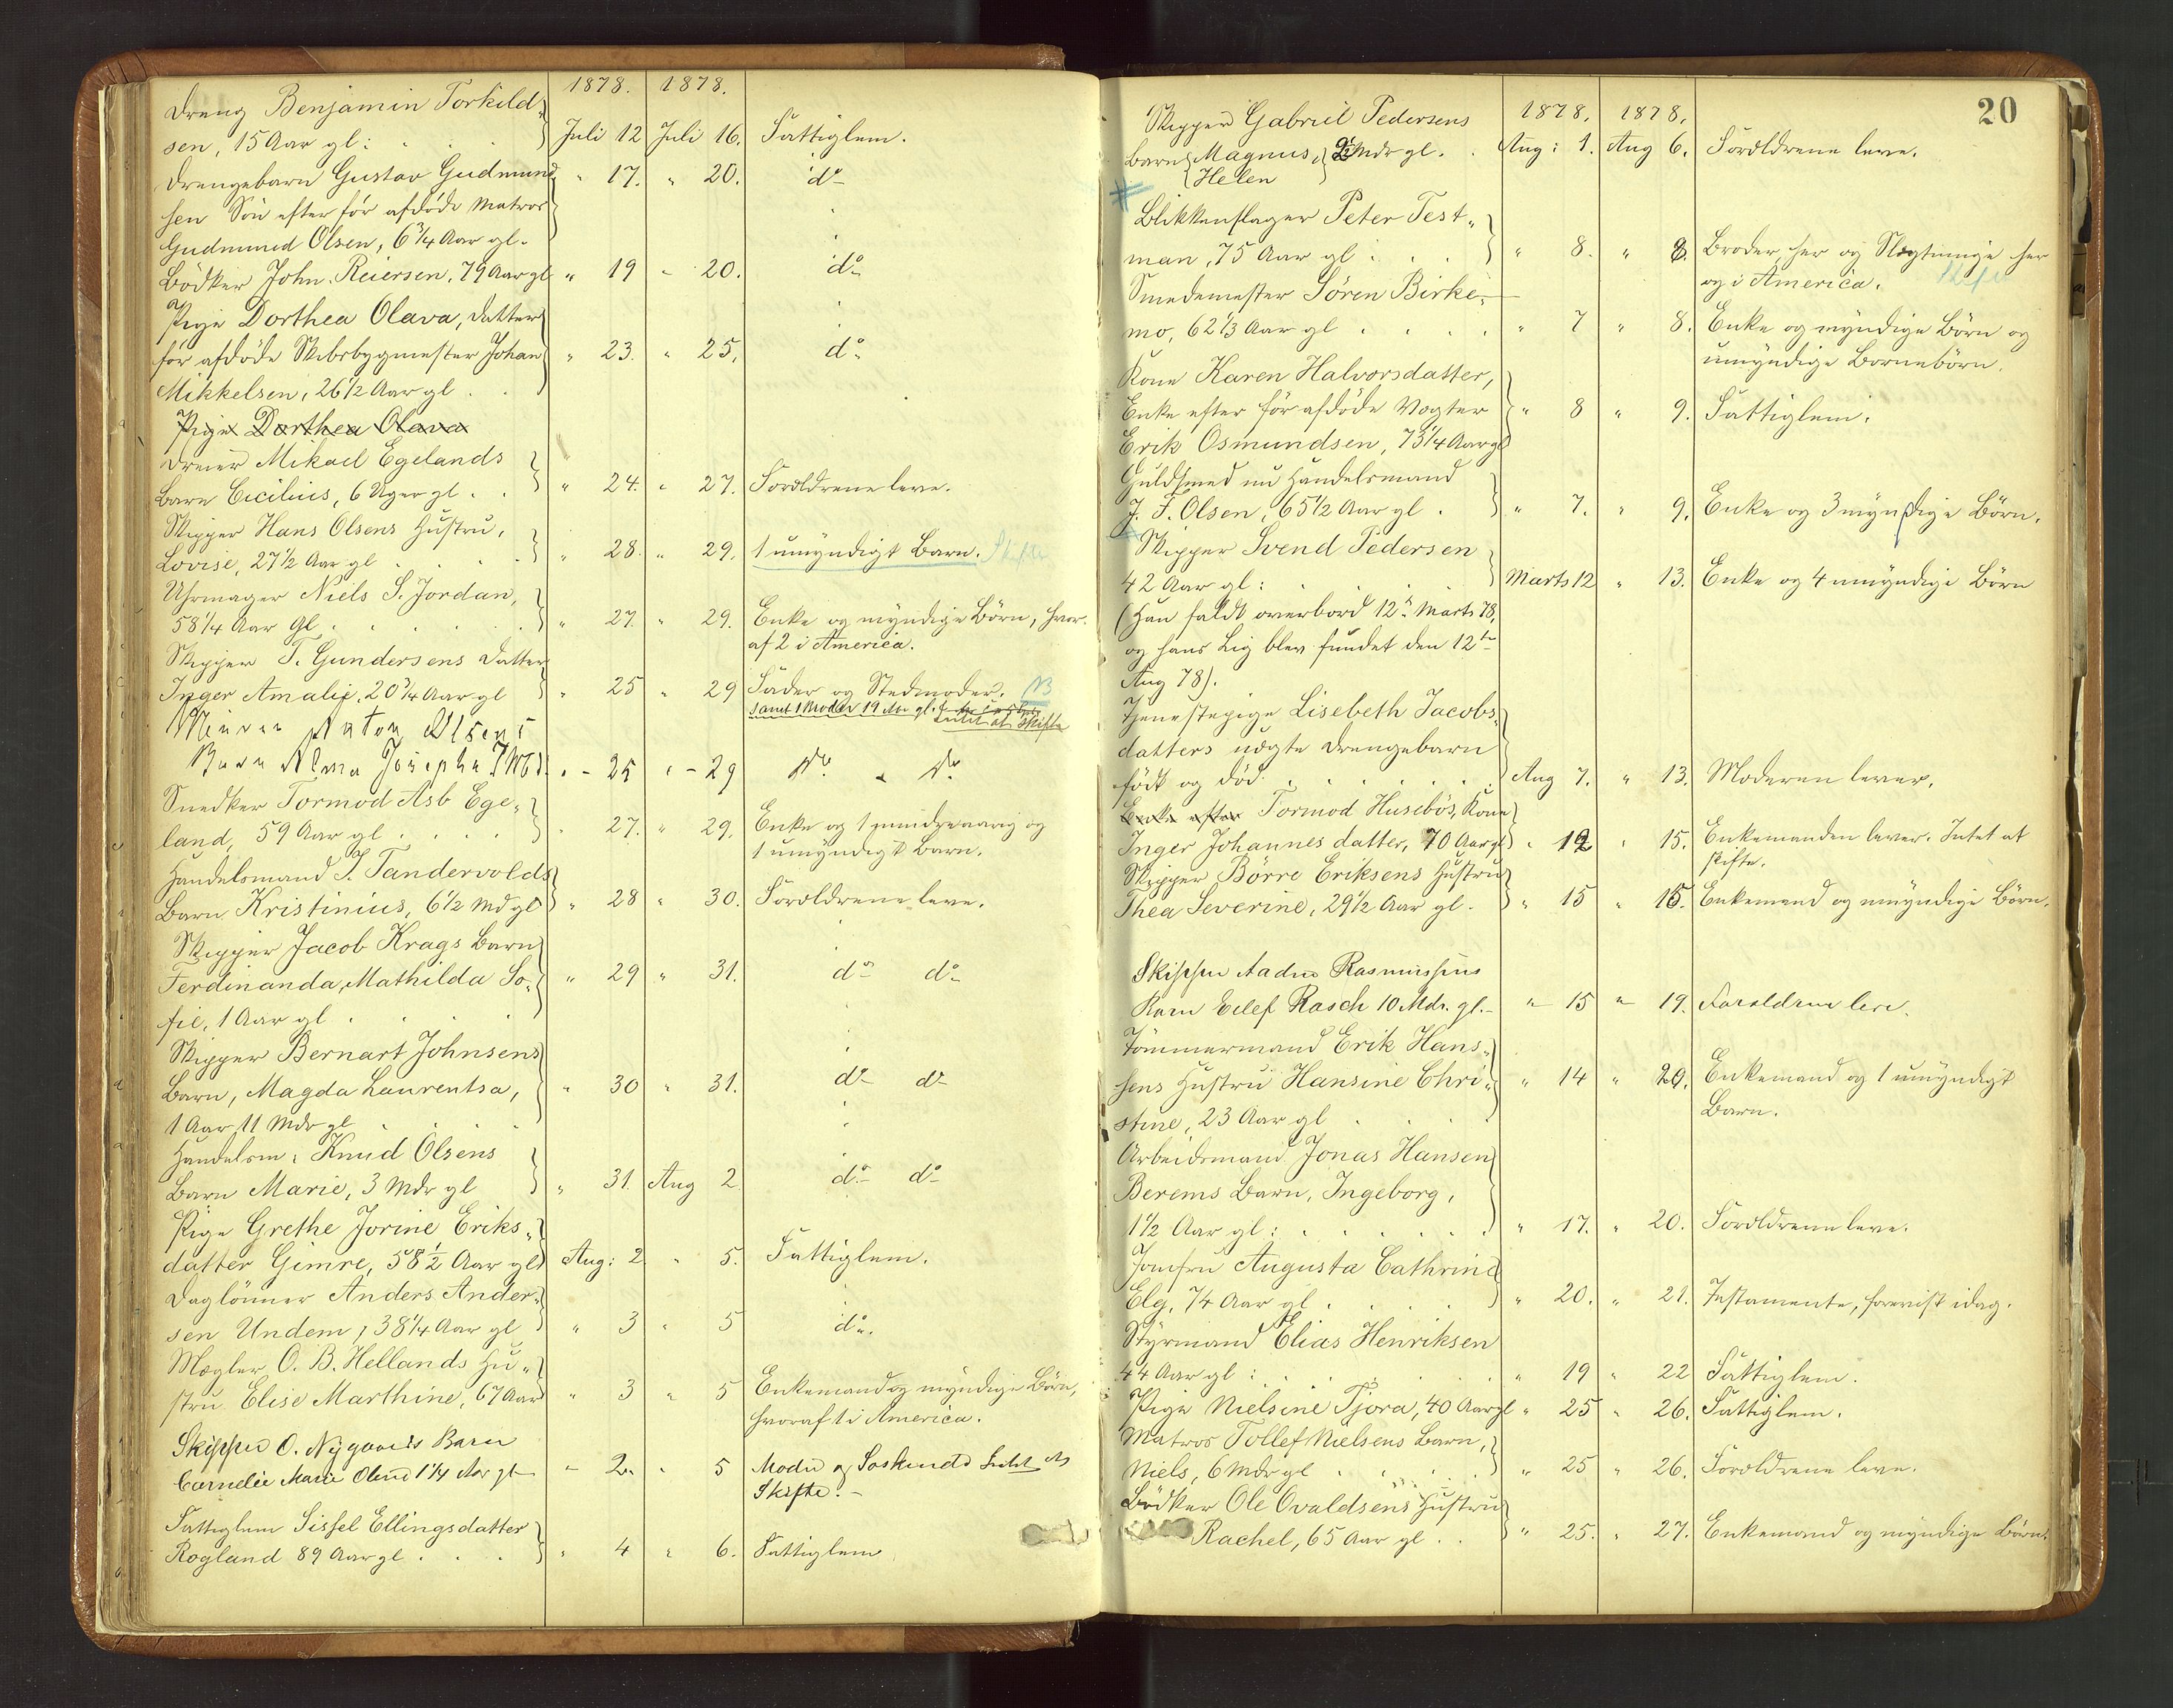 1878. 1878.
Dreng Benjamin Torkild-
sen, 15 Aar gl: Juli 12 Juli 16. Fattiglem.
Drengebarn Gustav Gudmund " 17. " 20. do
sen Søn efter før afdøde Matros
Gudmund Olsen, 6 3/4 Aar gl.
Bødker John Reiersen, 79 Aar gl " 19 " 20. do
Pige Dorthea Olava, Datter
før afdøde Skibsbygmester Johan " 23. " 25. do
Mikkelsen, 26 1/2 Aar gl
Pige Dorthea Olava
Dreier Mikael Egelands
Barn Cicilius, 6 Uger gl. " 24. " 27. Forældrene leve.
Skipper Hans Olsens Hustru,
Lovise, 27 1/2 Aar gl " 28. " 29. 1 umyndigt Barn. Skifte
Uhrmager Niels S. Jordan,
58 1/4 Aar gl " 27. " 29. Enke og myndige Børn, hvor-
af 2 i America.
Skipper T. Gundersens Datter
Inger Amalie, 20 3/4 Aar gl " 25 " 29 Fader og Stedmoder. NB
samt 1 Broder 19 Aar gl.
Intet at Skifte
Murer Anton Olsens
Barn Alma Josephe " - 25 " - 29 do " do
Snedker Tormod Asb Ege-
land, 59 Aar gl " 27. " 29. Enke og 1 mindreaarig og
1 umyndigt Barn.
Handelsmand J. Tandervolds
Barn Kristinius, 6 1/2 Md gl " 28 " 30. Forældrene leve.
Skipper Jacob Krags Barn
Ferdinanda, Mathilda So- " 29 " 31. do do
fie, 1 Aar gl
Skipper Bernart Johnsens
Barn, Magda Laurentsa, " 30 " 31. do do
1 Aar 11 Mdr gl
Handelsm: Knud Olsens
Barn Marie, 3 Mdr gl " 31. Aug 2. do do
Pige Grethe Jorine Eriks-
datter Gimre, 58 1/2 Aar gl Aug: 2 " 5. Fattiglem.
Daglønner Anders Ander-
sen Undem, 38 1/4 Aar gl " 3 " 5 do.
Mægler O. B. Hellands Hu-
stru Elise Marthine, 67 Aar " 3 " 5 Enkemand og myndige Børn,
hvoraf 1 i America.
Skipper O. Nygaards Barn
Cornelie Marie Oline 1 1/4 Aar gl - 2. " 5 Moder og Søskende Intet at
Skifte. -
Fattiglem Sissel Ellingsdatter
Rogland 89 Aar gl " 4 " 6. Fattiglem
20
1878. 1878.
Skipper Gabriel Pedersens
Barn Magnus, Mdr gl. Aug: 1. Aug 6. Forældrene leve.
Helen
Blikkenslager Peter Test-
man, 75 Aar gl " 8. " 8. Broder her og Slægtninge her
og i America.
Smedemester Søren Birke-
mo, 62 1/3 Aar gl " 7 " 8. Enke og myndige Børn og
umyndige Bornebørn.
Kone Karen Halvorsdatter,
Enke efter før afdøde Vogter " 8 " 9. Fattiglem.
Erik Osmundsen, 73 1/4 Aar gl
Guldsmed nu Handelsmand
J. F. Olsen, 65 1/2 Aar gl " 7. " 9. Enke og 3 myndige Børn.
Skipper Svend Pedersen
42 Aar gl: Marts 12 " 13. Enke og 4 umyndige Børn
(Han faldt overbord 12te Marts 78,
og hans Lig blev fundet den 12te
Aug 78).
Tjenestepige Lisebeth Jacobs-
datters uægte Drengebarn
født og død Aug 7. " 13. Moderen lever.
Enke efter Tormod Husebøs, Kone
Inger Johannesdatter, 70 Aar gl " 12 " 15. Enkemanden lever. Intet at
skifte.
Skipper Børre Eriksens Hustru
Thea Severine, 29 1/2 Aar gl. " 15 " 15. Enkemand og umyndige Børn.
Skipper Aadne Rasmussens
Barn Eilef Rasch 10 Mdr. gl. - " - 15 " - 19. Forældrene leve.
Tømmermand Erik Han-
sens Hustru Hansine Chri- " 14 " 20. Enkemand og 1 umyndigt
stine, 23 Aar gl Barn.
Arbeidsmand Jonas Hansen
Berems Barn, Ingeborg,
1 1/2 Aar gl: " 17. " 20. Forældrene leve.
Jomfru Augusta Cathrine
Elg, 74 Aar gl " 20. " 21. Testamente, forevist idag.
Styrmand Elias Henriksen
44 Aar gl: " 19 " 22 Fattiglem.
Pige Nielsine Tjora, 40 Aar gl " 25 " 26. Fattiglem.
Matros Tollef Nielsens Barn,
Niels, 6 Mdr gl " 25 " 26. Forældrene leve.
Bødker Ole Ovaldsens Hustru
Rachel, 65 Aar gl " 25. " 27. Enkemand og myndige Børn.